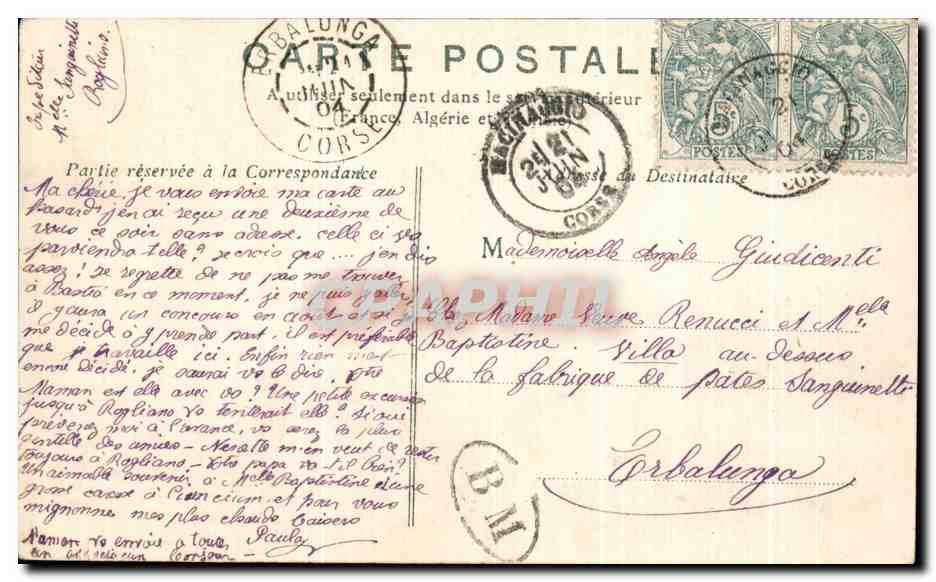 Expéditeur
Melle Sanguinetti
Rogliano
CARTE POSTALE
A utiliser seulement dans le
(France, Algérie et
Partie réservée à la Correspondance
du Destinataire
ERBALUNGA
JUIN
04
CORSE
MACINAGGIO
21
JUIN
04
CORSE
MACINAGGIO
21
04
CORSE
5c
POSTES
POSTES
Ma chérie, je vous envoie ma carte au
hasard; j'en ai reçu une deuxième de
vous ce soir sans adresse, celle ci vs
parviendra telle? Je crois que .... j'en dis
assez! Je regrette de ne pas me trouver
à Bastia en ce moment, je ne puis
il y aura un concours en août et si je
me décide à y prendre part, il est préférable
que je travaille ici. Enfin rien n'est
encore décidé, je saurai vs le dire. Votre
Maman est elle avec vs? Une petite excursion
jusqu'à Rogliano vs tenterait elle? Si oui
prévenez moi à l'avance, vs serez la plus
gentille des amies - de rester
toujours à Rogliano - Votre papa va-t-il bien?
Un aimable souvenir à Melle Baptistine et une
grosse caresse à et pour vous
mignonne mes plus chauds baisers
Maman vs envoie à toutes Paula
un affectueux bonjour
Mademoiselle Angèle Giudicenti
chez Madame Veuve Renucci et Melle
Baptistine. Villa au-dessus
de la fabrique de pâtes Sanguinetti
Erbalunga
BM